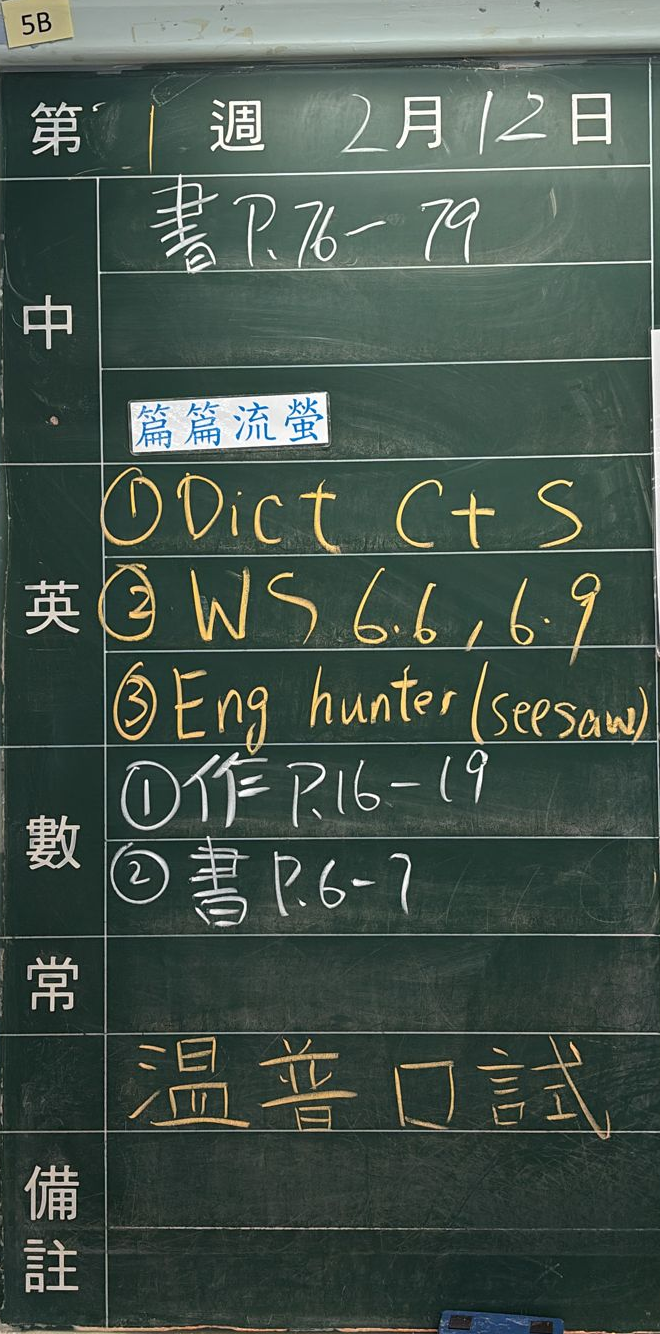 5B
第1週 2月12日
中 書 P.76-79
篇篇流螢
英 ①Dict C+S
② WS 6.6, 6.9
③Eng hunter (seesaw)
數 ①作 P.16-19
② 書 P.6-7
常
温普口試
備註